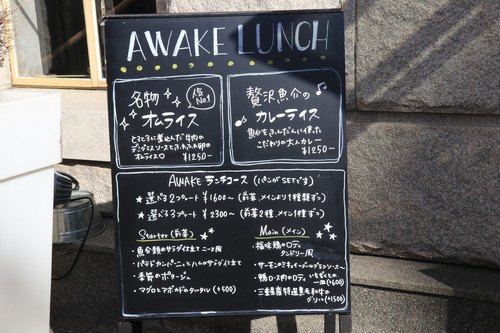 AWAKE LUNCH
名物
人気
No.1
オムライス
とろとろに煮込んだ牛肉の
デミグラスソースとふわふわ卵の
オムライス♡
¥1250-
贅沢魚介の
カレーライス
魚介をふんだんに使った
こだわりの大人カレー
¥1250-
AWAKE ランチコース (パンがSETです)
★選べる2つプレート ¥1600〜 (前菜、メインより1種類ずつ)
★選べる3つプレート ¥2300〜 (前菜2種、メイン1種ずつ)
Starter (前菜)
・魚介類のサラダ仕立てニース風
・パテドカンパーニュとハムのサラダ仕立て
・季節のポタージュ
・マグロとアボカドのタルタル (+500)
Main (メイン)
・播味鶏のロティ
タンドリー風
・サーモンのミキュイ ブールブランソース〜
・鴨ロース肉のロティ いちじくとの
一皿 (+600)
・三重県産特選黒毛和牛の
グリル (+1500)